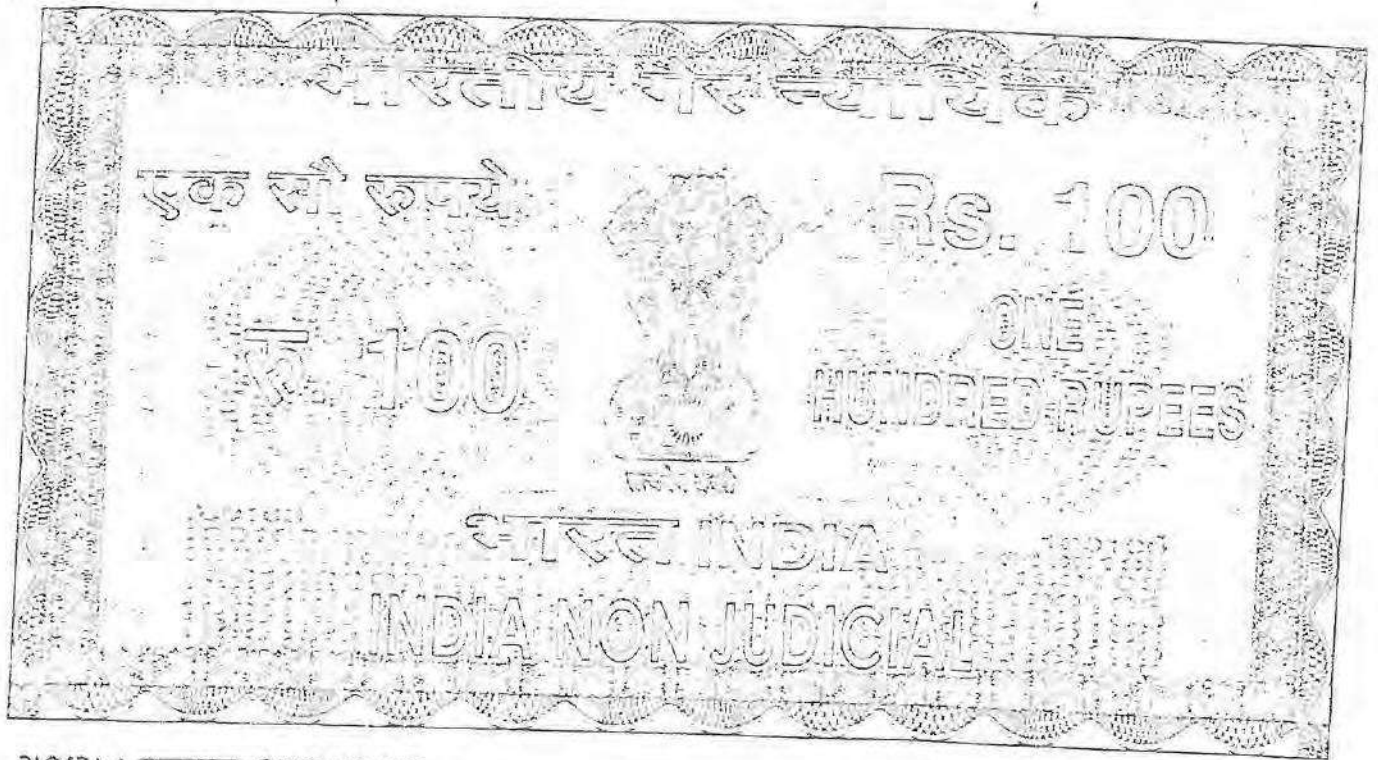 भारतीय गैर न्यायिक
एक सौ रुपये
Rs. 100
रु. 100
ONE
HUNDRED RUPEES
सत्यमेव जयते
भारत INDIA
INDIA NON JUDICIAL